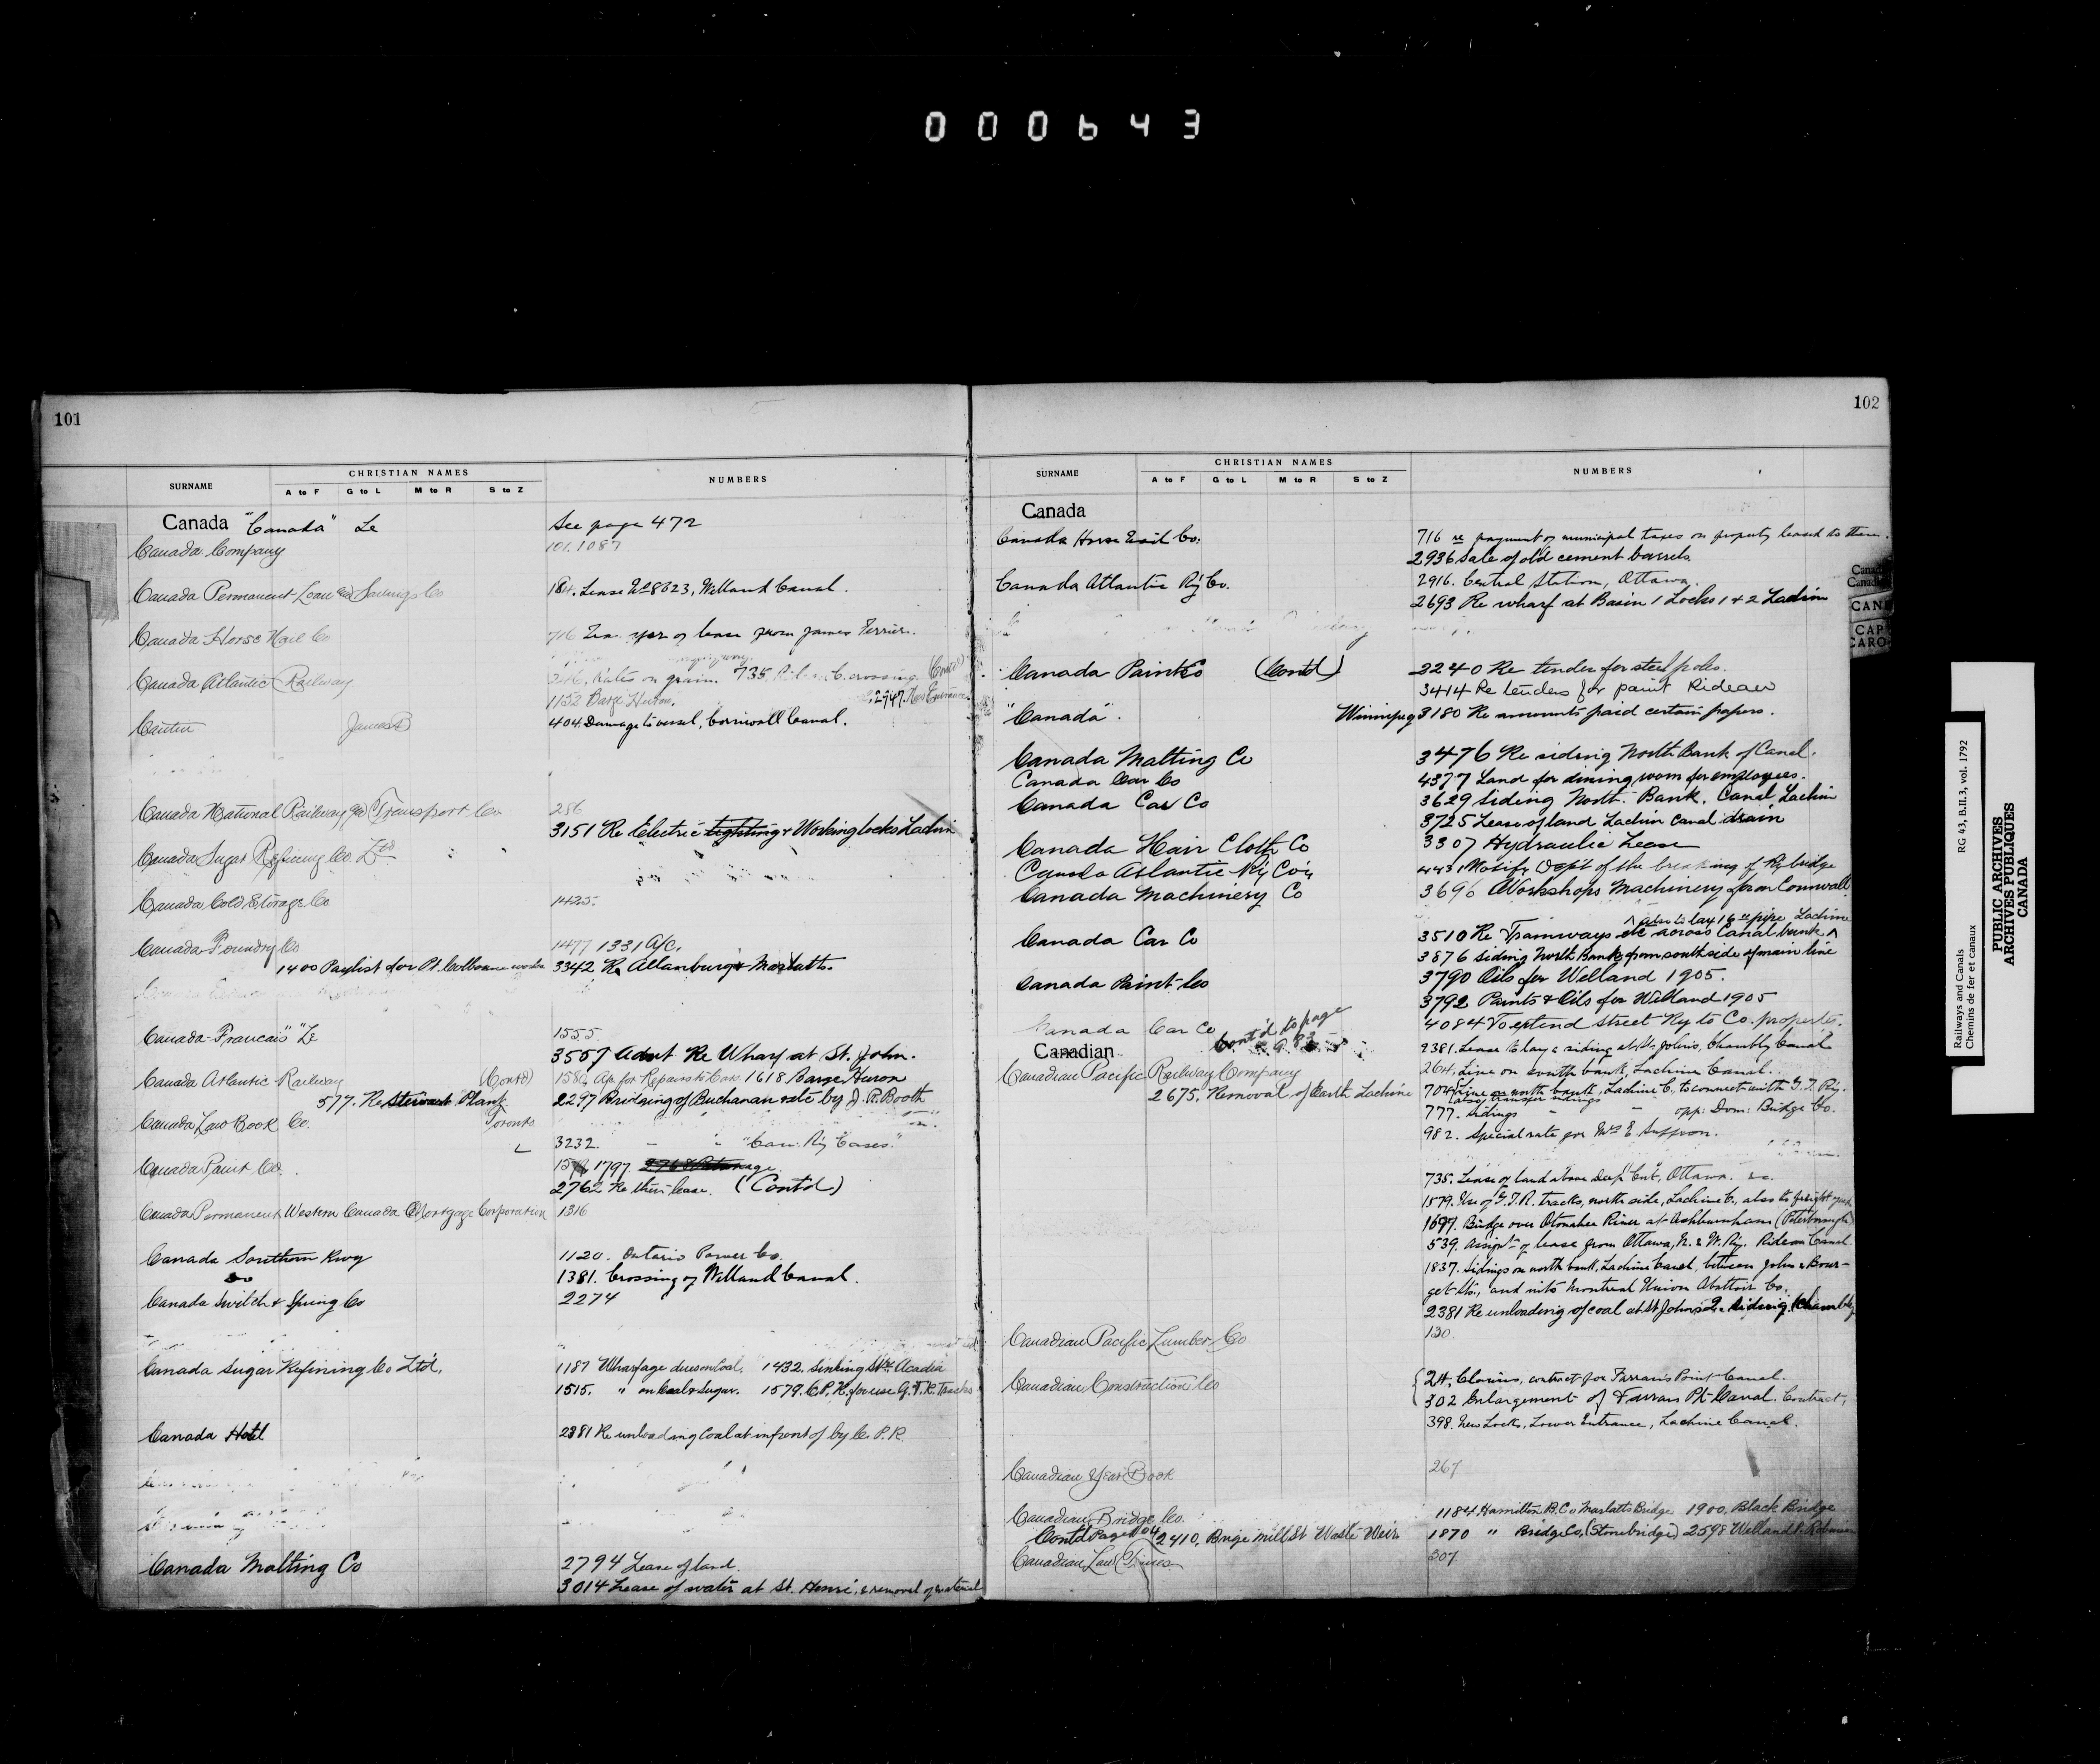 000643
101
SURNAME CHRISTIAN NAMES NUMBERS
A to F G to L M to R S to Z
Canada "Canada" Le See page 472
Canada Company 101. 1087
Canada Permanent Loan and Savings Co 184. Lease No 8623, Welland Canal.
Canada Horse Nail Co 716 yer of lease from James Ferrier.
Canada Atlantic Railway 286, Rates on grain. 735 crossing. (Contd)
1152 Barge Huron. 2747.
Cantin James 404. Damage to vessel, Cornwall Canal.
Canada National Railway and Transport Co 286
3151 Re Electric Lighting & Working locks Lachin
Canada Sugar Refining Co Ltd
Canada Cold Storage Co 1425.
Canada Foundry Co 1477 1331 A/C.
1400 Paylist for Pt. Colborne works 3342 Re Allanburg & Marlatts.
"Canada-Francais" Le 1555.
3557 Advt Re Wharf at St. John.
Canada Atlantic Railway (Contd) 1580 Ap. for Repairs to Cars 1618 Barge Huron
577. Re Stewart Plant 2297 Bridging of Buchanan rate by J. R. Booth
Canada Law Book Co. Toronto
3232. - " "Can. Ry Cases."
Canada Paint Co. 1797.
2762 Re their lease. (Contd)
Canada Permanent Western Canada Mortgage Corporation 1316
Canada Southern Rwy 1120. Ontario Power Co.
1381. Crossing of Welland Canal.
Canada Switch & Spring Co 2274
Canada Sugar Refining Co Ltd. 1187 Wharfage dues on Coal, 1432. Sinking Str Acadia
1515. " on Coal & Sugar. 1579. C.P.R. for use G.T.R. Tracks
Canada Hotel 2381 Re unloading Coal at in front of by C.P.R.
Canada Malting Co 2794 Lease of land.
3014 Lease of water at St. Henri, & removal of material
102
SURNAME CHRISTIAN NAMES NUMBERS
A to F G to L M to R S to Z
Canada
Canada Horse Nail Co. 716 re payment of municipal taxes on property leased to them.
2936 Sale of old cement barrels
Canada Atlantic Ry Co. 2916. Central Station, Ottawa.
2693 Re wharf at Basin 1 Locks 1 & 2 Lachin
Canada Paint Co (Contd) 2240 Re tender for steel poles.
3414 Re tenders for paint Rideau
"Canada". Winnipeg 3180 Re amounts paid certain papers.
Canada Malting Co 3476 Re siding North Bank of Canal.
Canada Car Co 4377 Land for dining room for employees.
Canada Car Co 3629 Siding North. Bank. Canal Lachin
3725 Lease of land Lachin Canal drain
Canada Hair Cloth Co 3307 Hydraulic Lease
Canada Atlantic Ry Coy 4431 Notify Dep't of the breaking of Ry bridge
Canada Machinery Co 3696 Workshops Machinery for on Cornwall
also to lay 16 in pipe, Lachine
Canada Car Co 3510 Re Tramways etc across Canal bank
3876 Siding North Bank from south side of main line
Canada Paint Co 3790 Oils for Welland 1905.
3792 Paints & Oils for Welland 1905
Canada Car Co Cont'd to page 983 4084 To extend Street Ry to Co. property.
Canadian 2381. Lease to lay a siding at St. Johns, Chambly Canal
Canadian Pacific Railway Company 264. Line on south bank, Lachine Canal.
2675. Removal of Earth Lachine 704. Line on north bank, Lachine C. to connect with G.T. Ry.
also transfer sidings
777. Sidings " " opp: Dom: Bridge Co.
982. Special rate for Mrs E
735. Lease of land above Deep Cut, Ottawa. &c.
1579. Use of G.T.R. tracks, north side, Lachine C., also to freight
1697. Bridge over Otonabee River at Ashburnham (Peterborough)
539. Assignt of lease from Ottawa, N. & W. Ry. Rideau Canal
1837. Sidings on north bank, Lachine Canal, between John & Bour-
get Sts., and into Montreal Union Abattoir Co.
2381 Re unloading of coal at St Johns & Siding. (Chambly)
Canadian Pacific Lumber Co 130.
Canadian Construction Co 24. Claims, contract for Farran's Point Canal.
302 Enlargement of Farrans Pt. Canal. Contract.
398. New Locks, Lower Entrance, Lachine Canal.
Canadian Year Book 267
Canadian Bridge Co. 1184. Hamilton B. Co Marlatts Bridge 1900. Black Bridge
Contd Page 104 2410. Brige Mill St Waste Weir 1870 " Bridge Co, (Stonebridge) 2598 Welland
Canadian Law Times 307
CAN
CAP
CARO
Railways and Canals RG 43, B.II.3, vol. 1792
Chemins de fer et canaux
PUBLIC ARCHIVES
ARCHIVES PUBLIQUES
CANADA